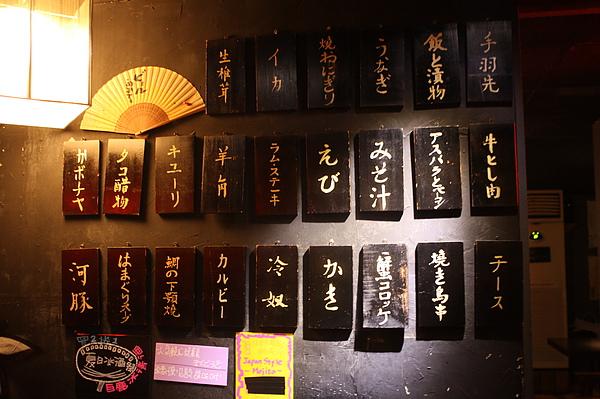 手羽先
飯と漬物
うなぎ
焼おにぎり
イカ
生椎茸
ビール
牛とし肉
アスパラベーコン
みそ汁
えび
ラム・ステーキ
羊肉
キューリ
タコ酢物
カボナヤ
チース
焼き鳥串
蟹コロッケ
かき
冷奴
カルビー
鯛の下顎焼
はまぐり
河豚
夏日冰酒祭
Japan Style
Mojito